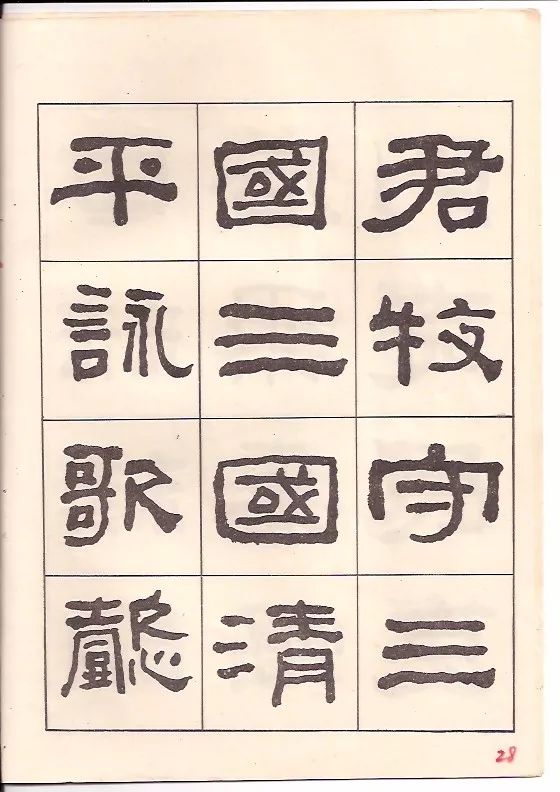 君牧守三
國三國清
平詠歌懿
28